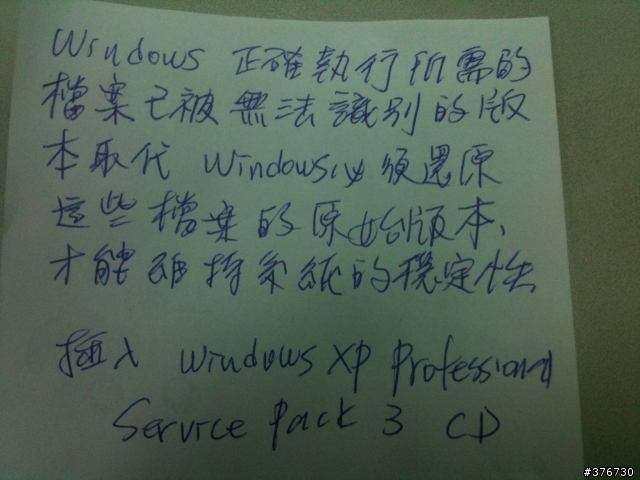 Windows 正確執行所需的
檔案已被無法識別的版
本取代 Windows必須還原
這些檔案的原始版本,
才能維持系統的穩定性
插入 Windows XP Professional
Service Pack 3 CD
#376730